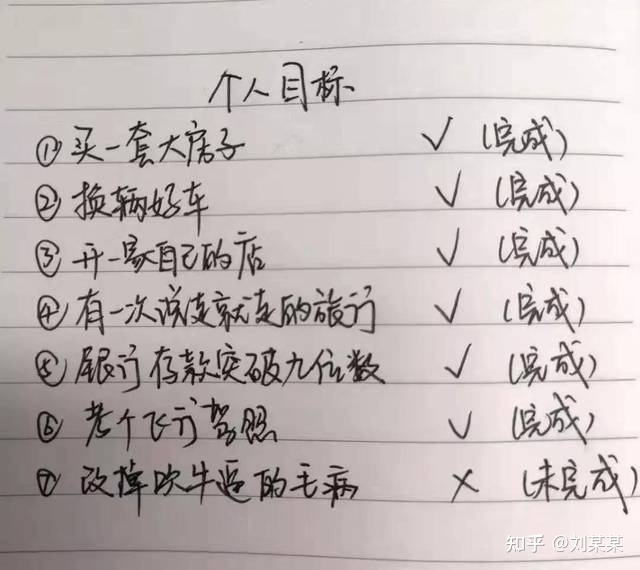 个人目标
①买一套大房子 √ (完成)
②换辆好车 √ (完成)
③开一家自己的店 √ (完成)
④有一次说走就走的旅行 √ (完成)
⑤银行存款突破九位数 √ (完成)
⑥考个飞行驾照 √ (完成)
⑦改掉吹牛逼的毛病 × (未完成)
知乎 @刘某某